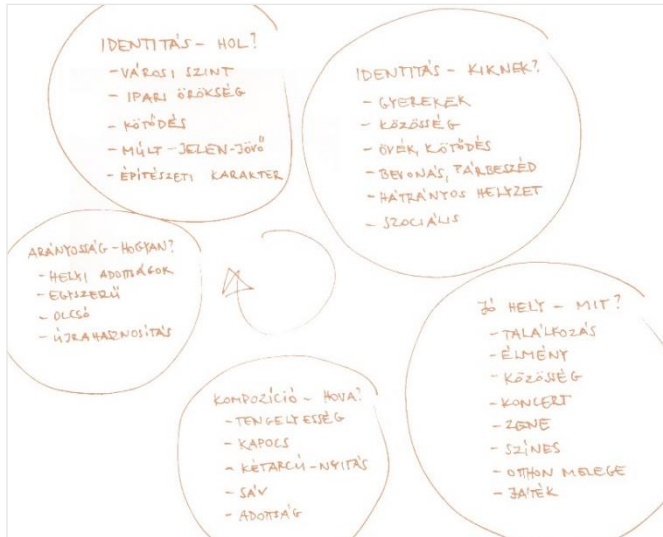 IDENTITÁS - HOL?
- VÁROSI SZINT
- IPARI ÖRÖKSÉG
- KÖTŐDÉS
- MÚLT-JELEN-JÖVŐ
- ÉPÍTÉSZETI KARAKTER
IDENTITÁS - KIKNEK?
- GYEREKEK
- KÖZÖSSÉG
- ÖVÉK, KÖTŐDÉS
- BEVONÁS, PÁRBESZÉD
- HÁTRÁNYOS HELYZET
- SZOCIÁLIS
ARÁNYOSSÁG - HOGYAN?
- HELYI ADOTTSÁGOK
- EGYSZERŰ
- OLCSÓ
- ÚJRAHASZNOSÍTÁS
JÓ HELY - MIT?
- TALÁLKOZÁS
- ÉLMÉNY
- KÖZÖSSÉG
- KONCERT
- ZENE
- SZÍNES
- OTTHON MELEGE
- JÁTÉK
KOMPOZÍCIÓ - HOVA?
- TENGELYESSÉG
- KAPOCS
- KÉTARCÚ-NYITÁS
- SÁV
- ADOTTSÁG